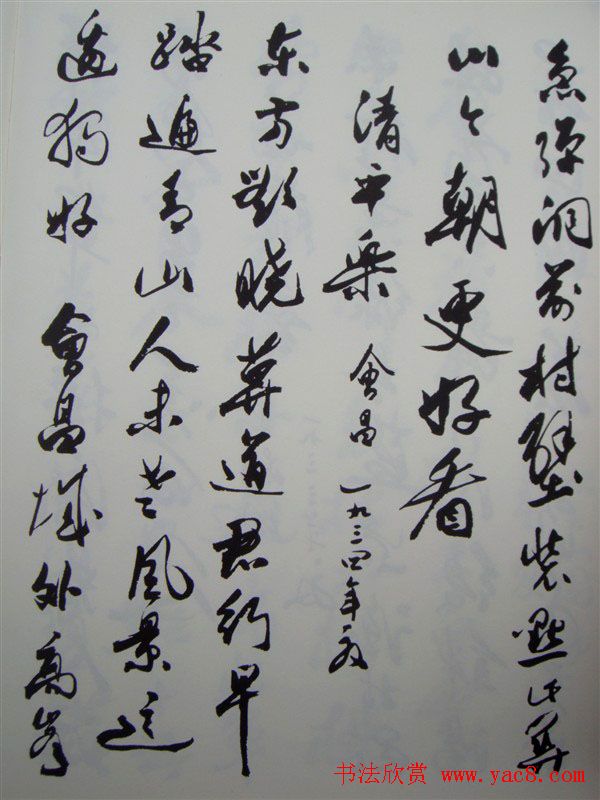 急弹洞前村壁装點此关
山今朝更好看
清平楽 會昌 一九三四年夏
东方欲晓莫道君行早
踏遍青山人未老风景这
邊獨好 會昌城外高峯
书法欣赏 www.yac8.com